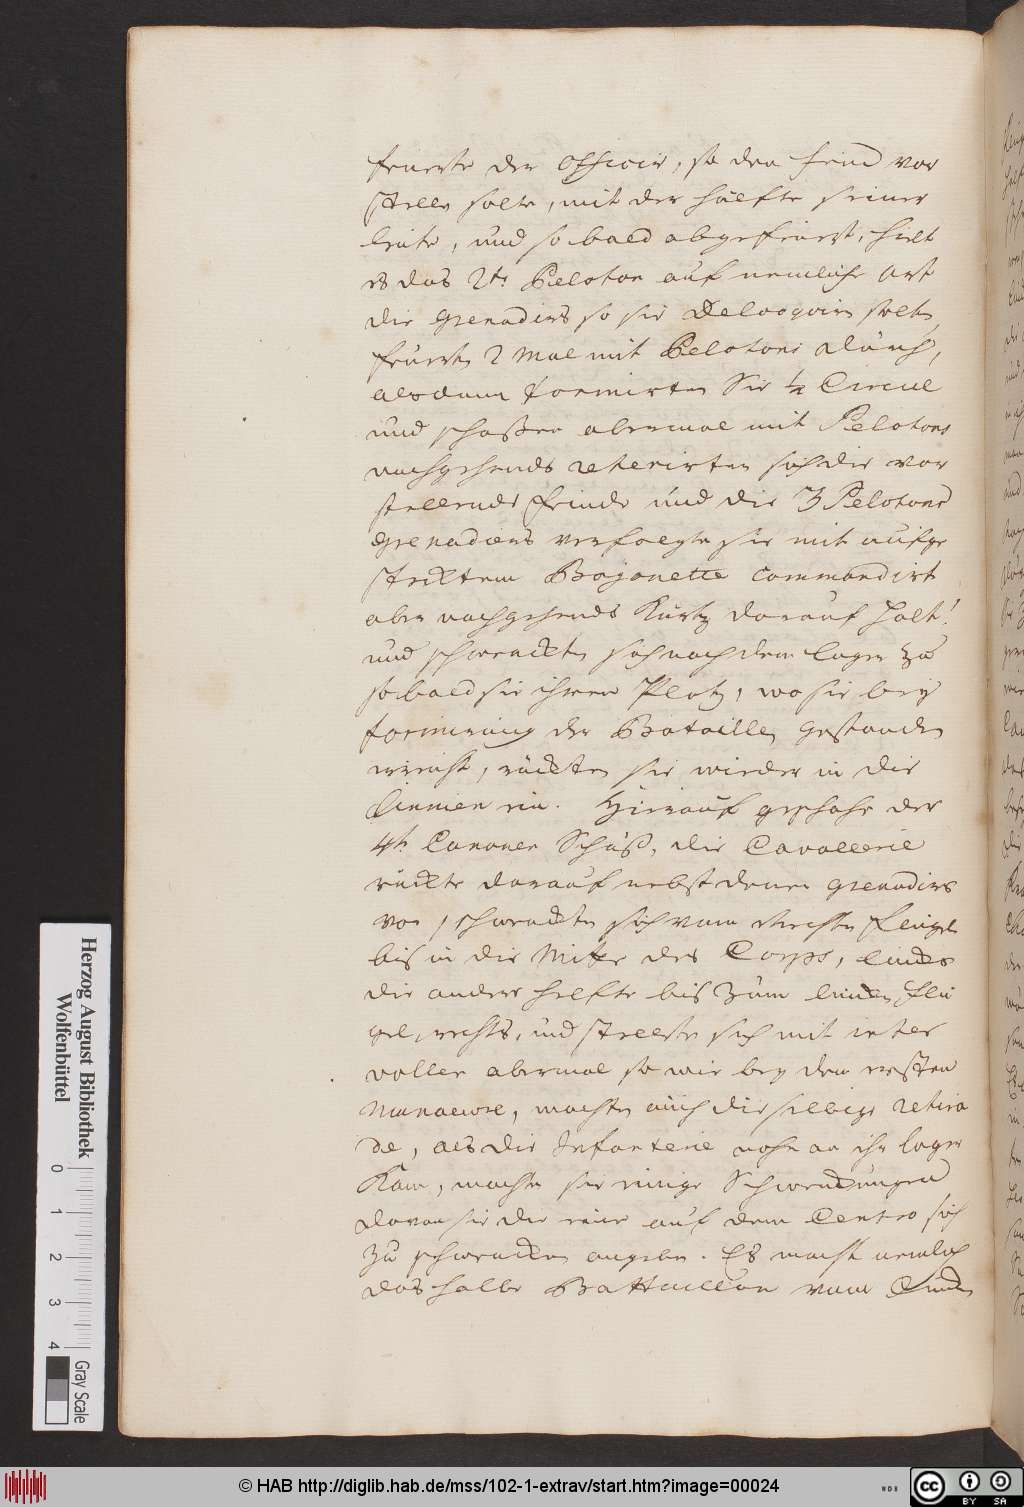 feuerte der Officir, so den feind vor
stelle solte, mit der hälfte seiner
leute, und so bald abgefeuert, hielt
es das 2te Peloton auf nemliche Art
die Grenadirs so sie solten
feurten 2 Mal mit Pelotons durch,
alsdann formirten Sie ½ Circul
und schoßen abermal mit Pelotons
nachgehends reterirten sich die vor
stellende feinde und die 3 Pelotons
Grenadiers verfolgte sie mit aufge
stecktem Bajonette commandirt
aber nachgehends Kurtz darauf Halt!
und schwenckten sich nach dem lager zu
so bald sie ihren Platz, wo sie bey
formirung der Bataille gestanden
erreicht, rückten sie wieder in die
Linnien ein. Hierauf geschahe der
4te Canonen Schuß, die Cavallerie
rückte darauf nebst denen Grenadirs
vor, schwenckten sich vom rechten flügel
bis in die Mitte des Corps, lincks
die andere helfte bis zum lincken flü
gel, rechts, und stellete sich mit inter
vallen abermal so wie bey dem ersten
Manaeuvre, machten auch die selbige retira
de, als die Infanterie nahe an ihr lager
Kam, machte sie einige Schwenckungen
davon sie die eine auf dem Centro sich
zu schwencken angeben. Es macht nemlich
das halbe Battaillon vom Lincken
Herzog August Bibliothek
Wolfenbüttel
0 1 2 3 4
Gray Scale
© HAB http://diglib.hab.de/mss/102-1-extrav/start.htm?image=00024
WDB
cc BY SA